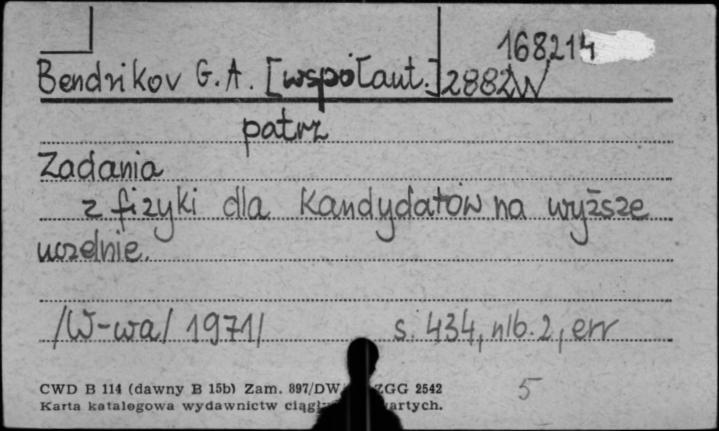 168214
Bendrikov G.A. [współaut.] 2882W
patrz
Zadania
z fizyki dla kandydatów na wyższe
uczelnie.
/W-wa/ 1971/ s. 434, nlb. 2, err
5
CWD B 114 (dawny B 15b) Zam. 897/DW ZGG 2542
Karta katalogowa wydawnictw